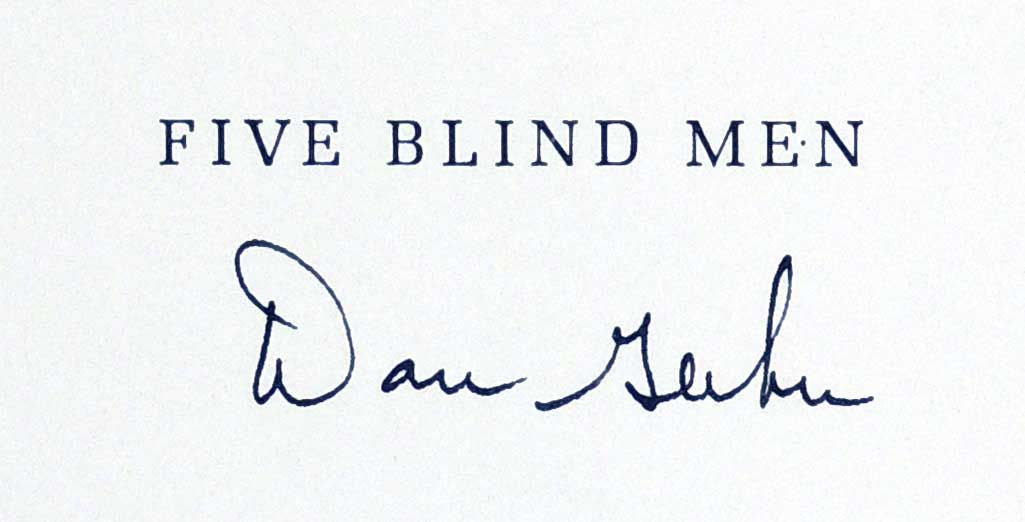 FIVE BLIND MEN
Dan Gerber